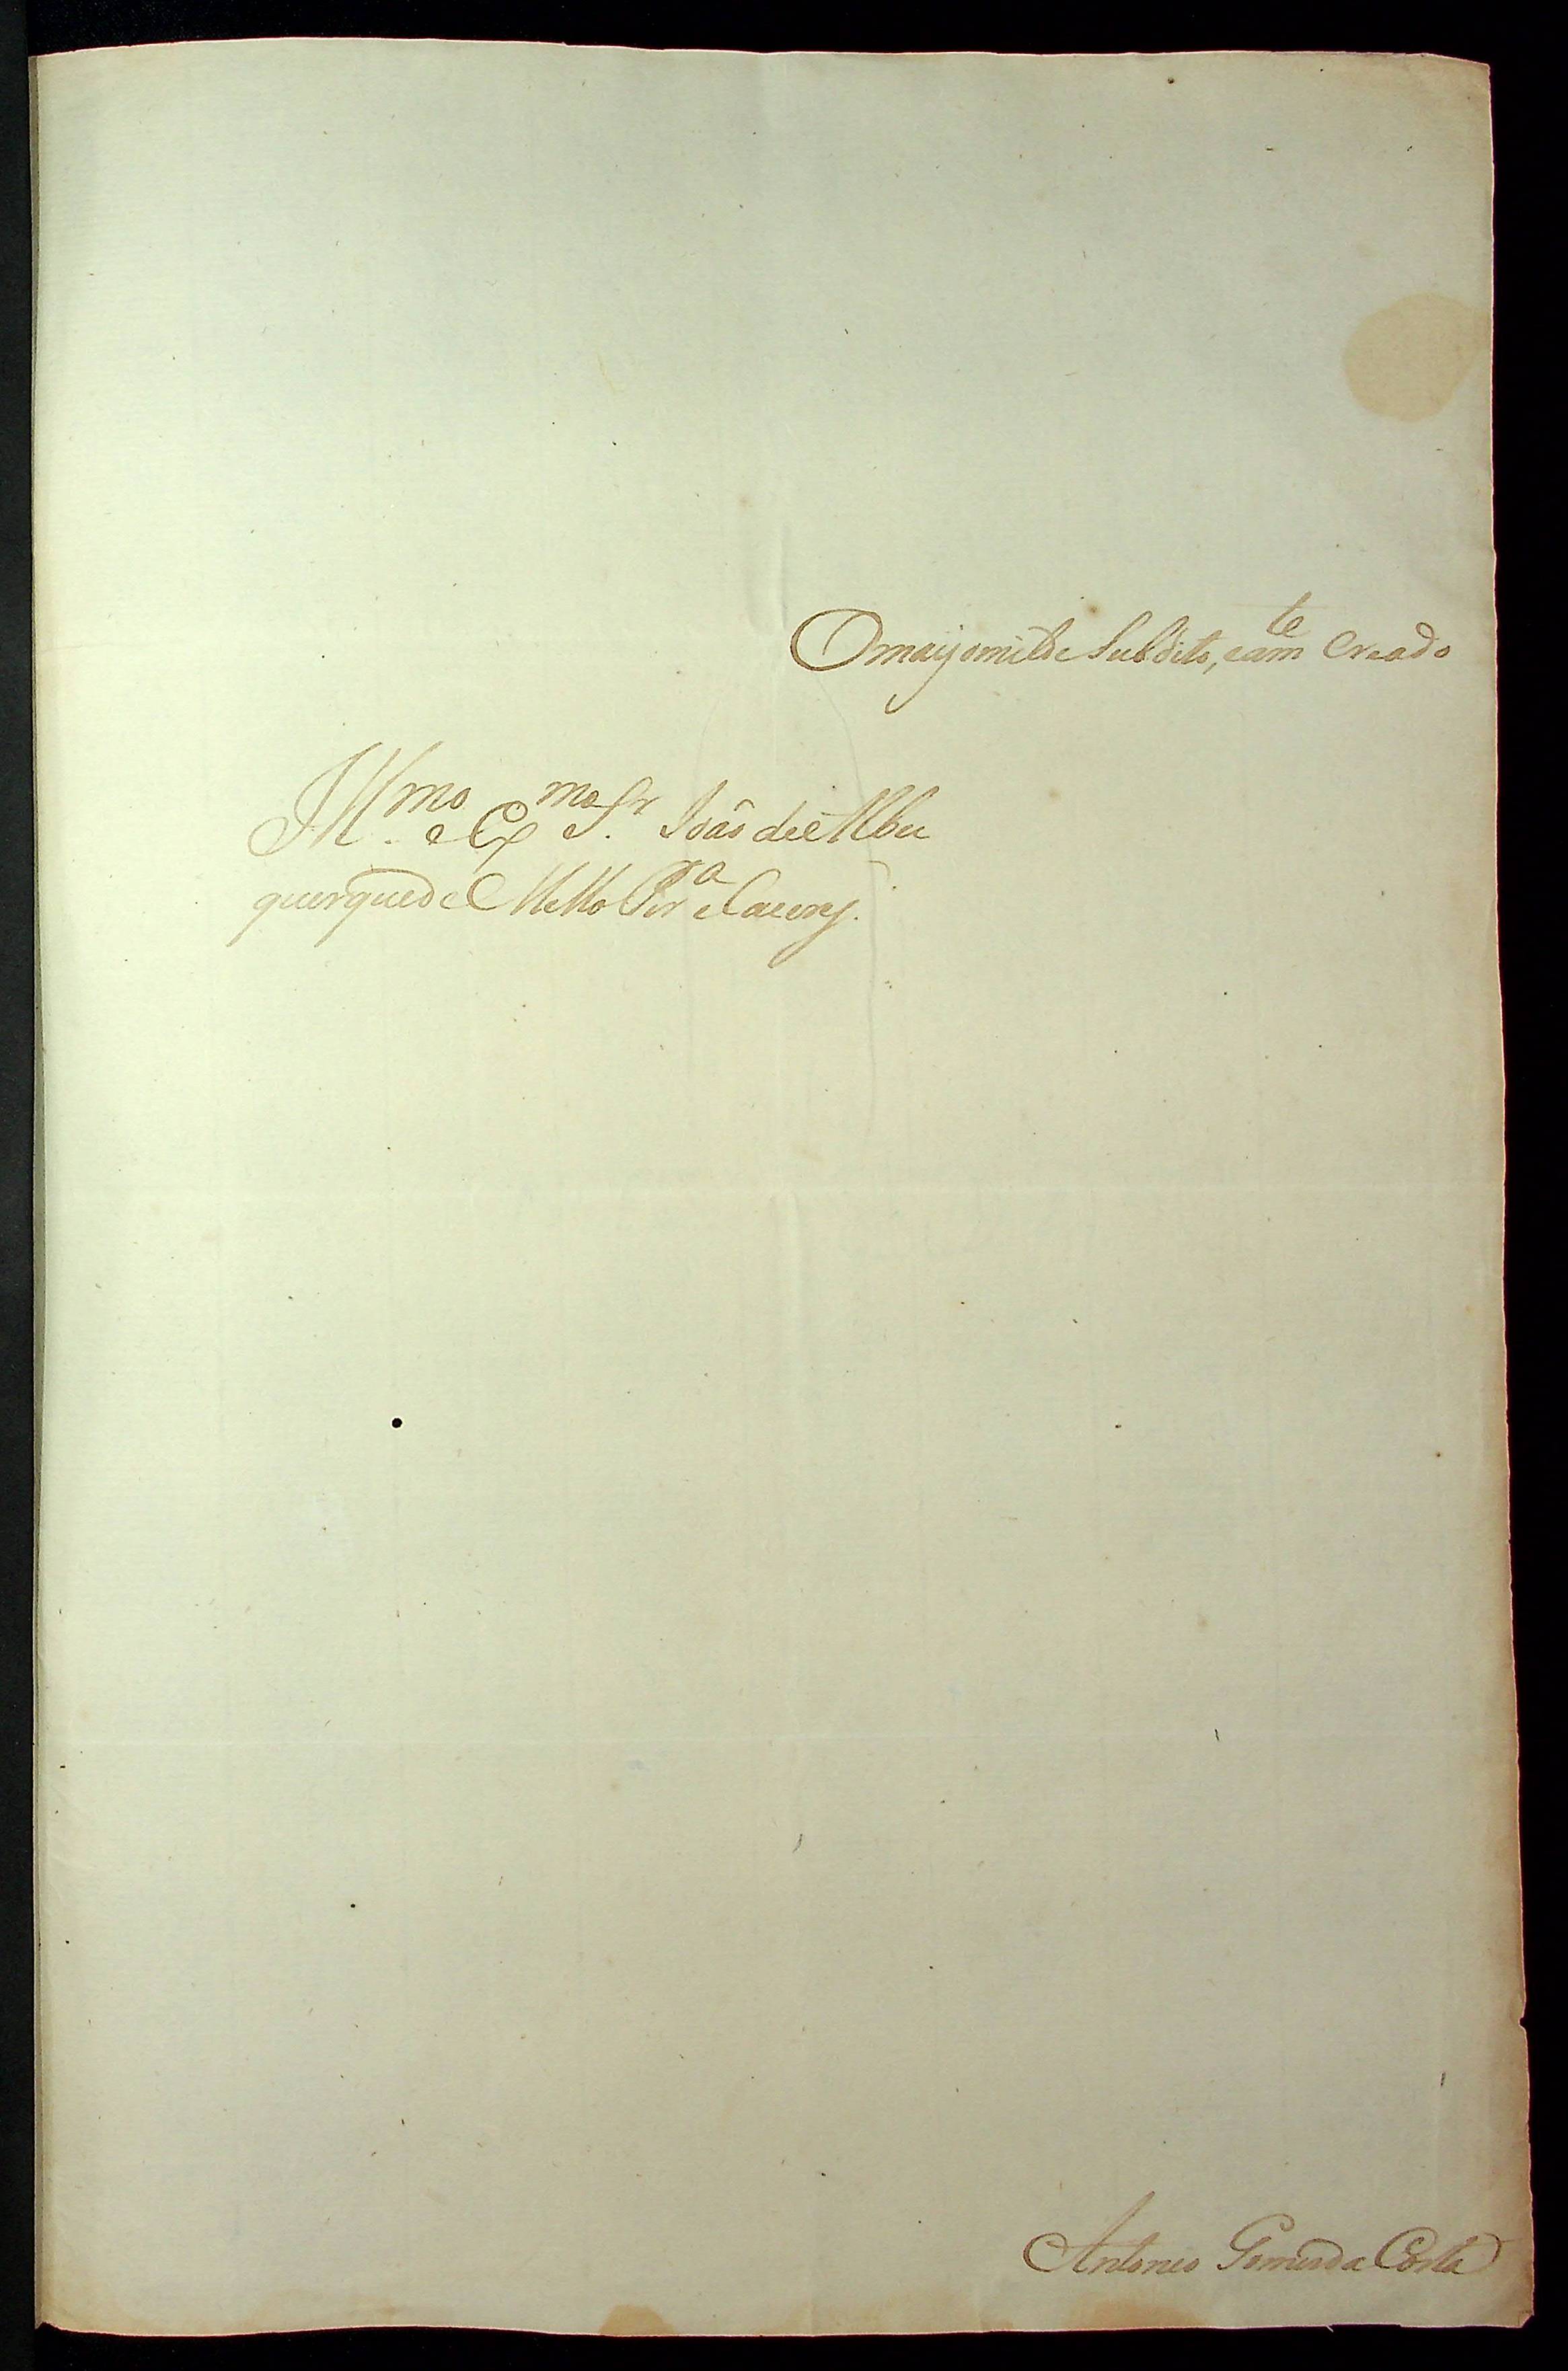 O mays omilde Subdito, e am.te Creado
Ill.mo e Ex.mo S.r João de Albu
querque de Mello Per.a e Caceres.
Antonio Gomes da Costa